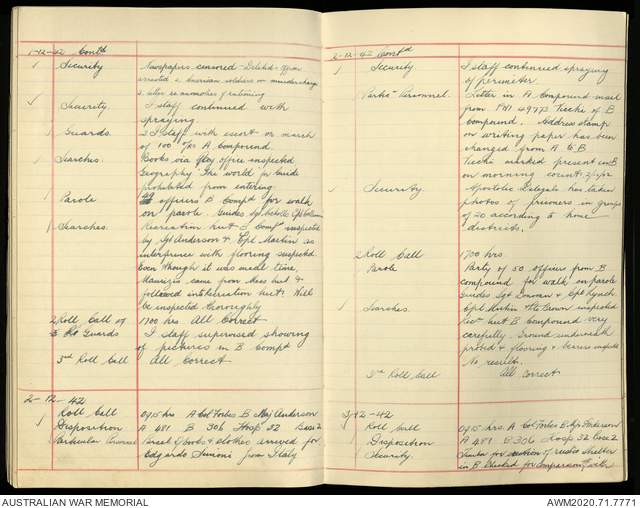 1-12-42 Contd
Security Newspapers censored - Deleted: officer
arrested & American soldiers on murder charge
& letter re anomolies of rationing
Security. I staff continued with
spraying.
Guards. 2 I staff with escort on march
of 100 o/ps A Compound.
Searches. Books via Pay office inspected.
Geography "The World for Guide
prohibited from entering.
Parole 49 officers B Compd for walk
on parole. Guides Sgt Cpl
Searches. Recreation hut Compd inspected
by Sgt Anderson & Cpl Martin as
interference with flooring suspected.
Even though it was meal time,
Maurizis came from Mess hut &
followed into Recreation hut! Will
be inspected thoroughly
2 Roll Call of 1700 hrs All Correct
Guards I staff supervised showing
of pictures in B Compd
3rd Roll Call All Correct
2-12-42
Roll Call 0915 hrs A Col Forbes B Maj Anderson
Disposition A 481 B 306 Hosp 32 Base 2
Particular Personnel Parcel of books & clothes arrived for
Edgardo Simoni from Italy
2-12-42 Contd
Security. I staff continued spraying
of perimeter.
Partic. Personnel. Letter in A Compound mail
from PWI 49773 Tieche of B
Compound. Address stamp
on writing paper has been
changed from A to B
Tieche marked present in B
on morning count. 2/12/42
Security. Apostolic Delegate has taken
photos of prisoners in groups
of 20 according to home
districts.
2 Roll Call 1700 hrs.
Parole Party of 50 officers from B
compound for walk on parole
Guides Sgt Donovan & Cpl Lynch
Searches. Cpl Martin Pte Crown inspected
Rec hut B Compound very
carefully. Ground underneath
probed & flooring &
No result.
3rd Roll Call All correct
3-12-42
Roll Call 0915 hrs. A Col Forbes B Maj Anderson
Disposition A 481 B 306 Hosp 32 Base 2
Security. Timber for erection of rustic shelter
in B Checked for comparison with
AUSTRALIAN WAR MEMORIAL AWM2020.71.7771